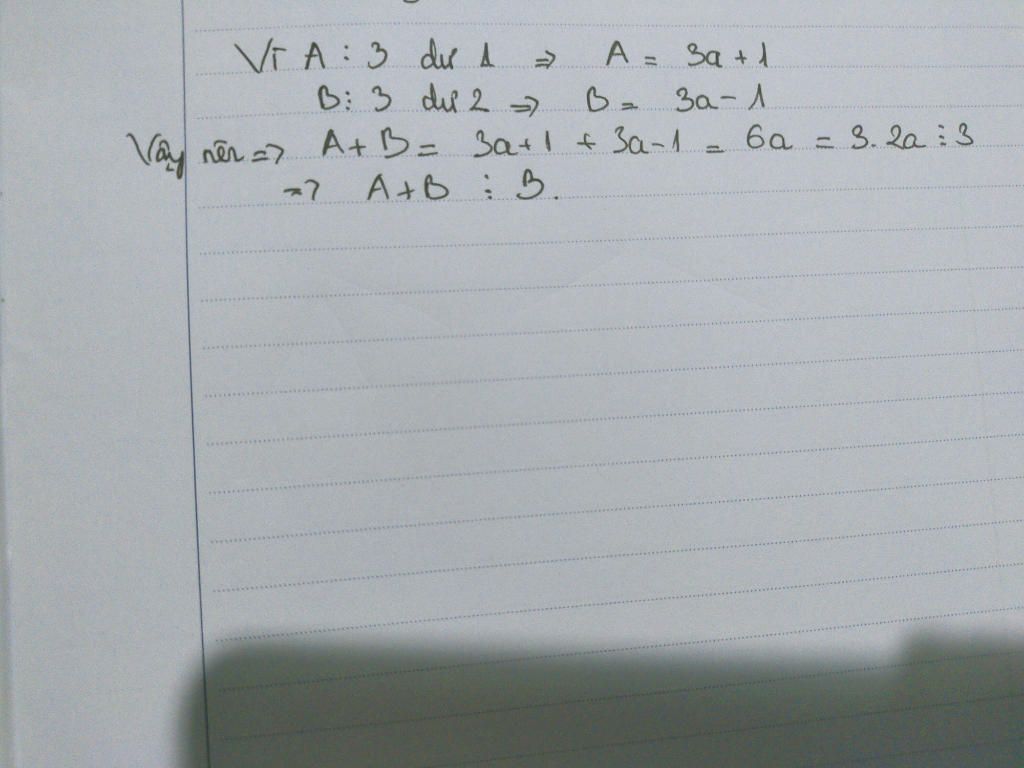 Vì A : 3 dư 1 => A = 3a + 1
B : 3 dư 2 => B = 3a - 1
Vậy nên => A + B = 3a + 1 + 3a - 1 = 6a = 3. 2a ⋮ 3
=> A + B ⋮ 3.